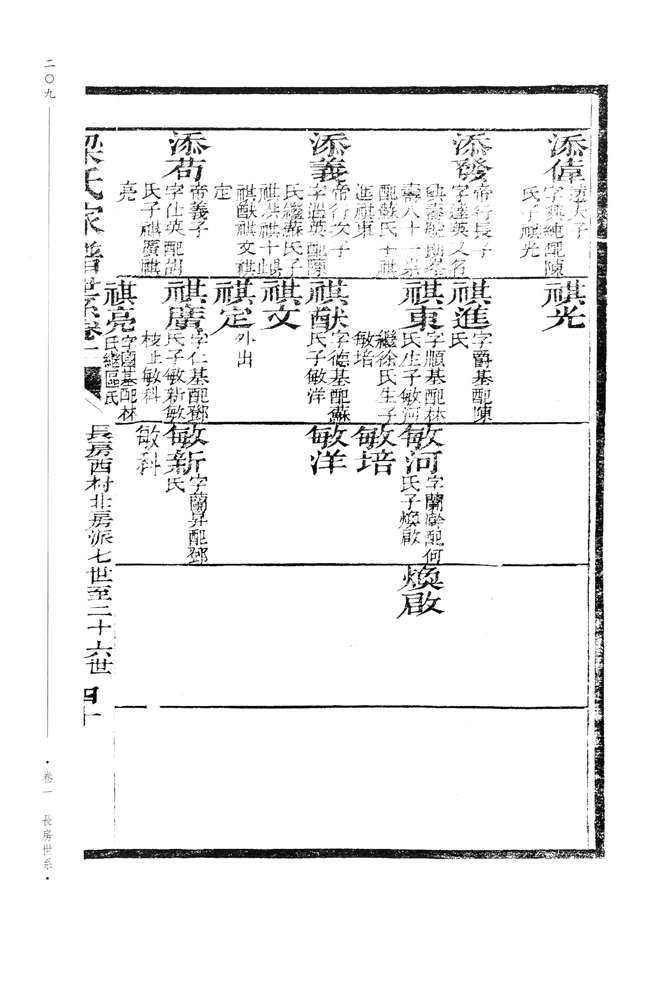 添偉
達大子
字興純配陳
氏子祺光
添發
帝行長子
字達英又名
壽八十一
配蘇氏子祺
進祺東
添義
帝行次子
字溫英配陳
氏繼蘇氏子
祺猷祺文祺
定
添苟
帝義子
字仕英配胡
氏子祺廣祺
亮
祺光
祺進
字爵基配陳
氏
祺東
字順基配林
氏生子敏河
繼徐氏生子
敏培
祺猷
字德基配蘇
氏子敏洋
祺文
祺定
外出
祺廣
字仁基配鄧
氏子敏新敏
枝敏科
祺亮
字國基配林
氏繼區氏
敏河
字蘭幹配何
氏子煥啟
敏培
敏洋
敏新
字蘭昇配鄧
氏
敏科
煥啟
梁氏家譜世系卷一
長房西村北房派七世至二十六世
四十
二〇九
·卷一 長房世系·